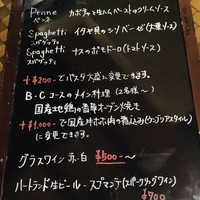 Penne カボチャと生ハムペーストのクリームソース
ペンネ
Spaghetti イタヤ貝のジノベーゼ(大葉ソース)
スパゲッティ
Spaghetti ナスのポモドーロ(トマトソース)
スパゲッティ
+¥200-でパスタ大盛に変更できます。
B・Cコースのメイン料理(2名様〜)
国産地鶏の香草オーブン焼き
+¥1,000-で国産牛ホホ肉の煮込み(ヴェネツィアスタイル)
に変更できます。
グラスワイン 赤・白 ¥500-〜
ハートランド生ビール・スプマンテ(スパークリングワイン)
¥700